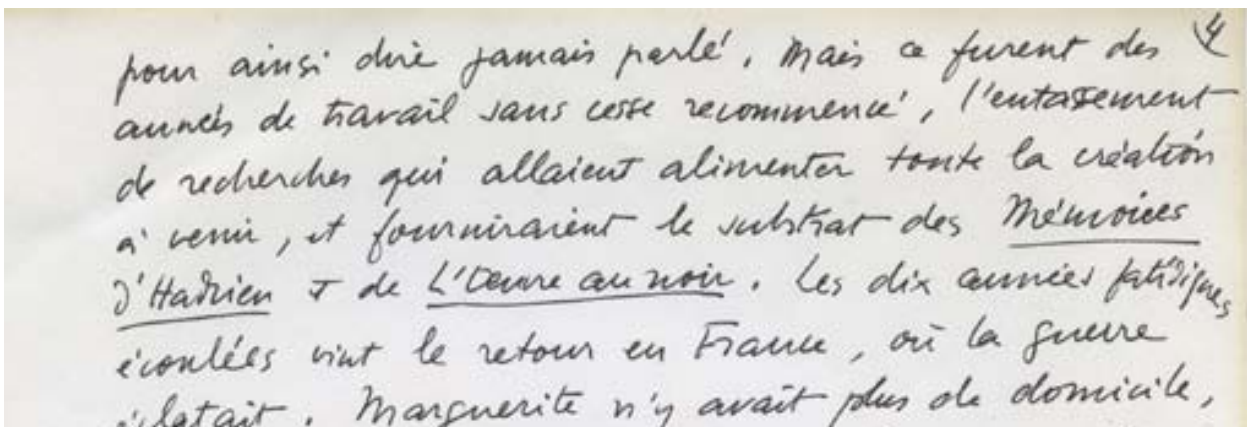 4
pour ainsi dire jamais parlé. Mais ce furent des
années de travail sans cesse recommencé, l'entassement
de recherches qui allaient alimenter toute la création
à venir, et fourniraient le substrat des Mémoires
d'Hadrien & de L'Oeuvre au noir. Les dix années fatidiques
écoulées vint le retour en France, où la guerre
éclatait. Marguerite n'y avait plus de domicile,